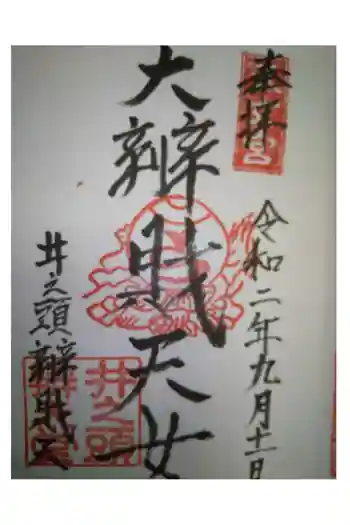 奉拝
令和二年九月十一日
大辨財天女
井之頭辨財天
井之頭